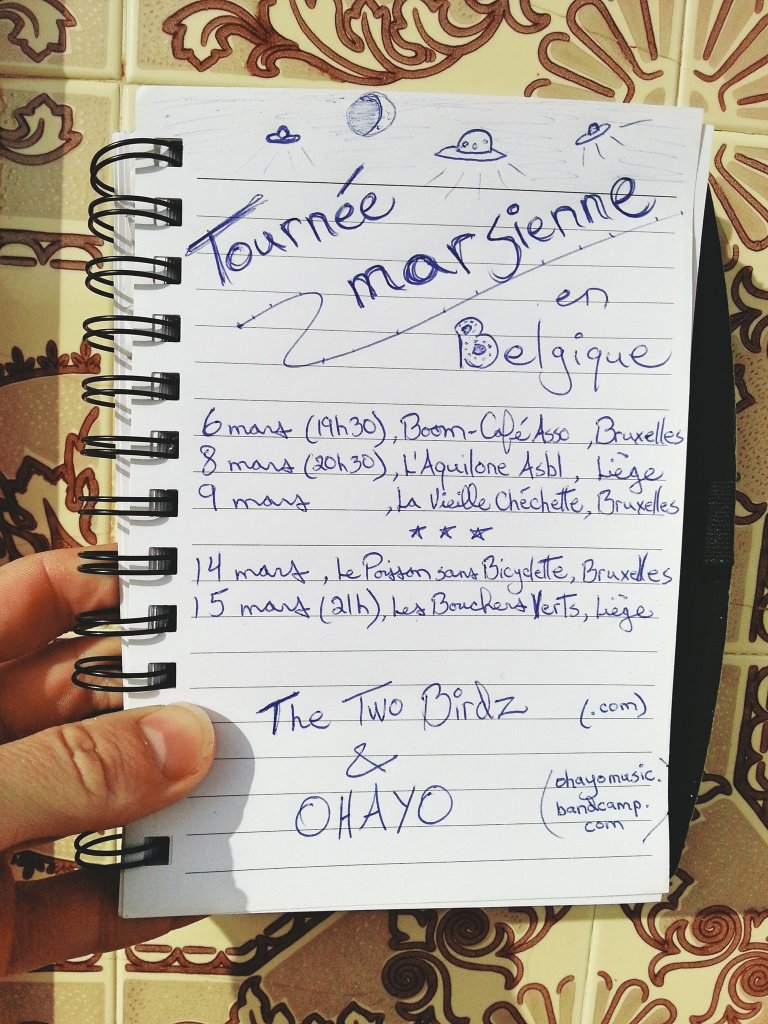 Tournée
marsienne
en
Belgique
6 mars (19h30), Boom-Café Asso, Bruxelles
8 mars (20h30), L'Aquilone Asbl, Liège
9 mars , La Vieille Chéchette, Bruxelles
14 mars, Le Poisson sans Bicyclette, Bruxelles
15 mars (21h), Les Bouchers Verts, Liège
The Two Birdz (.com)
&
OHAYO
(ohayomusic.
bandcamp.
com)